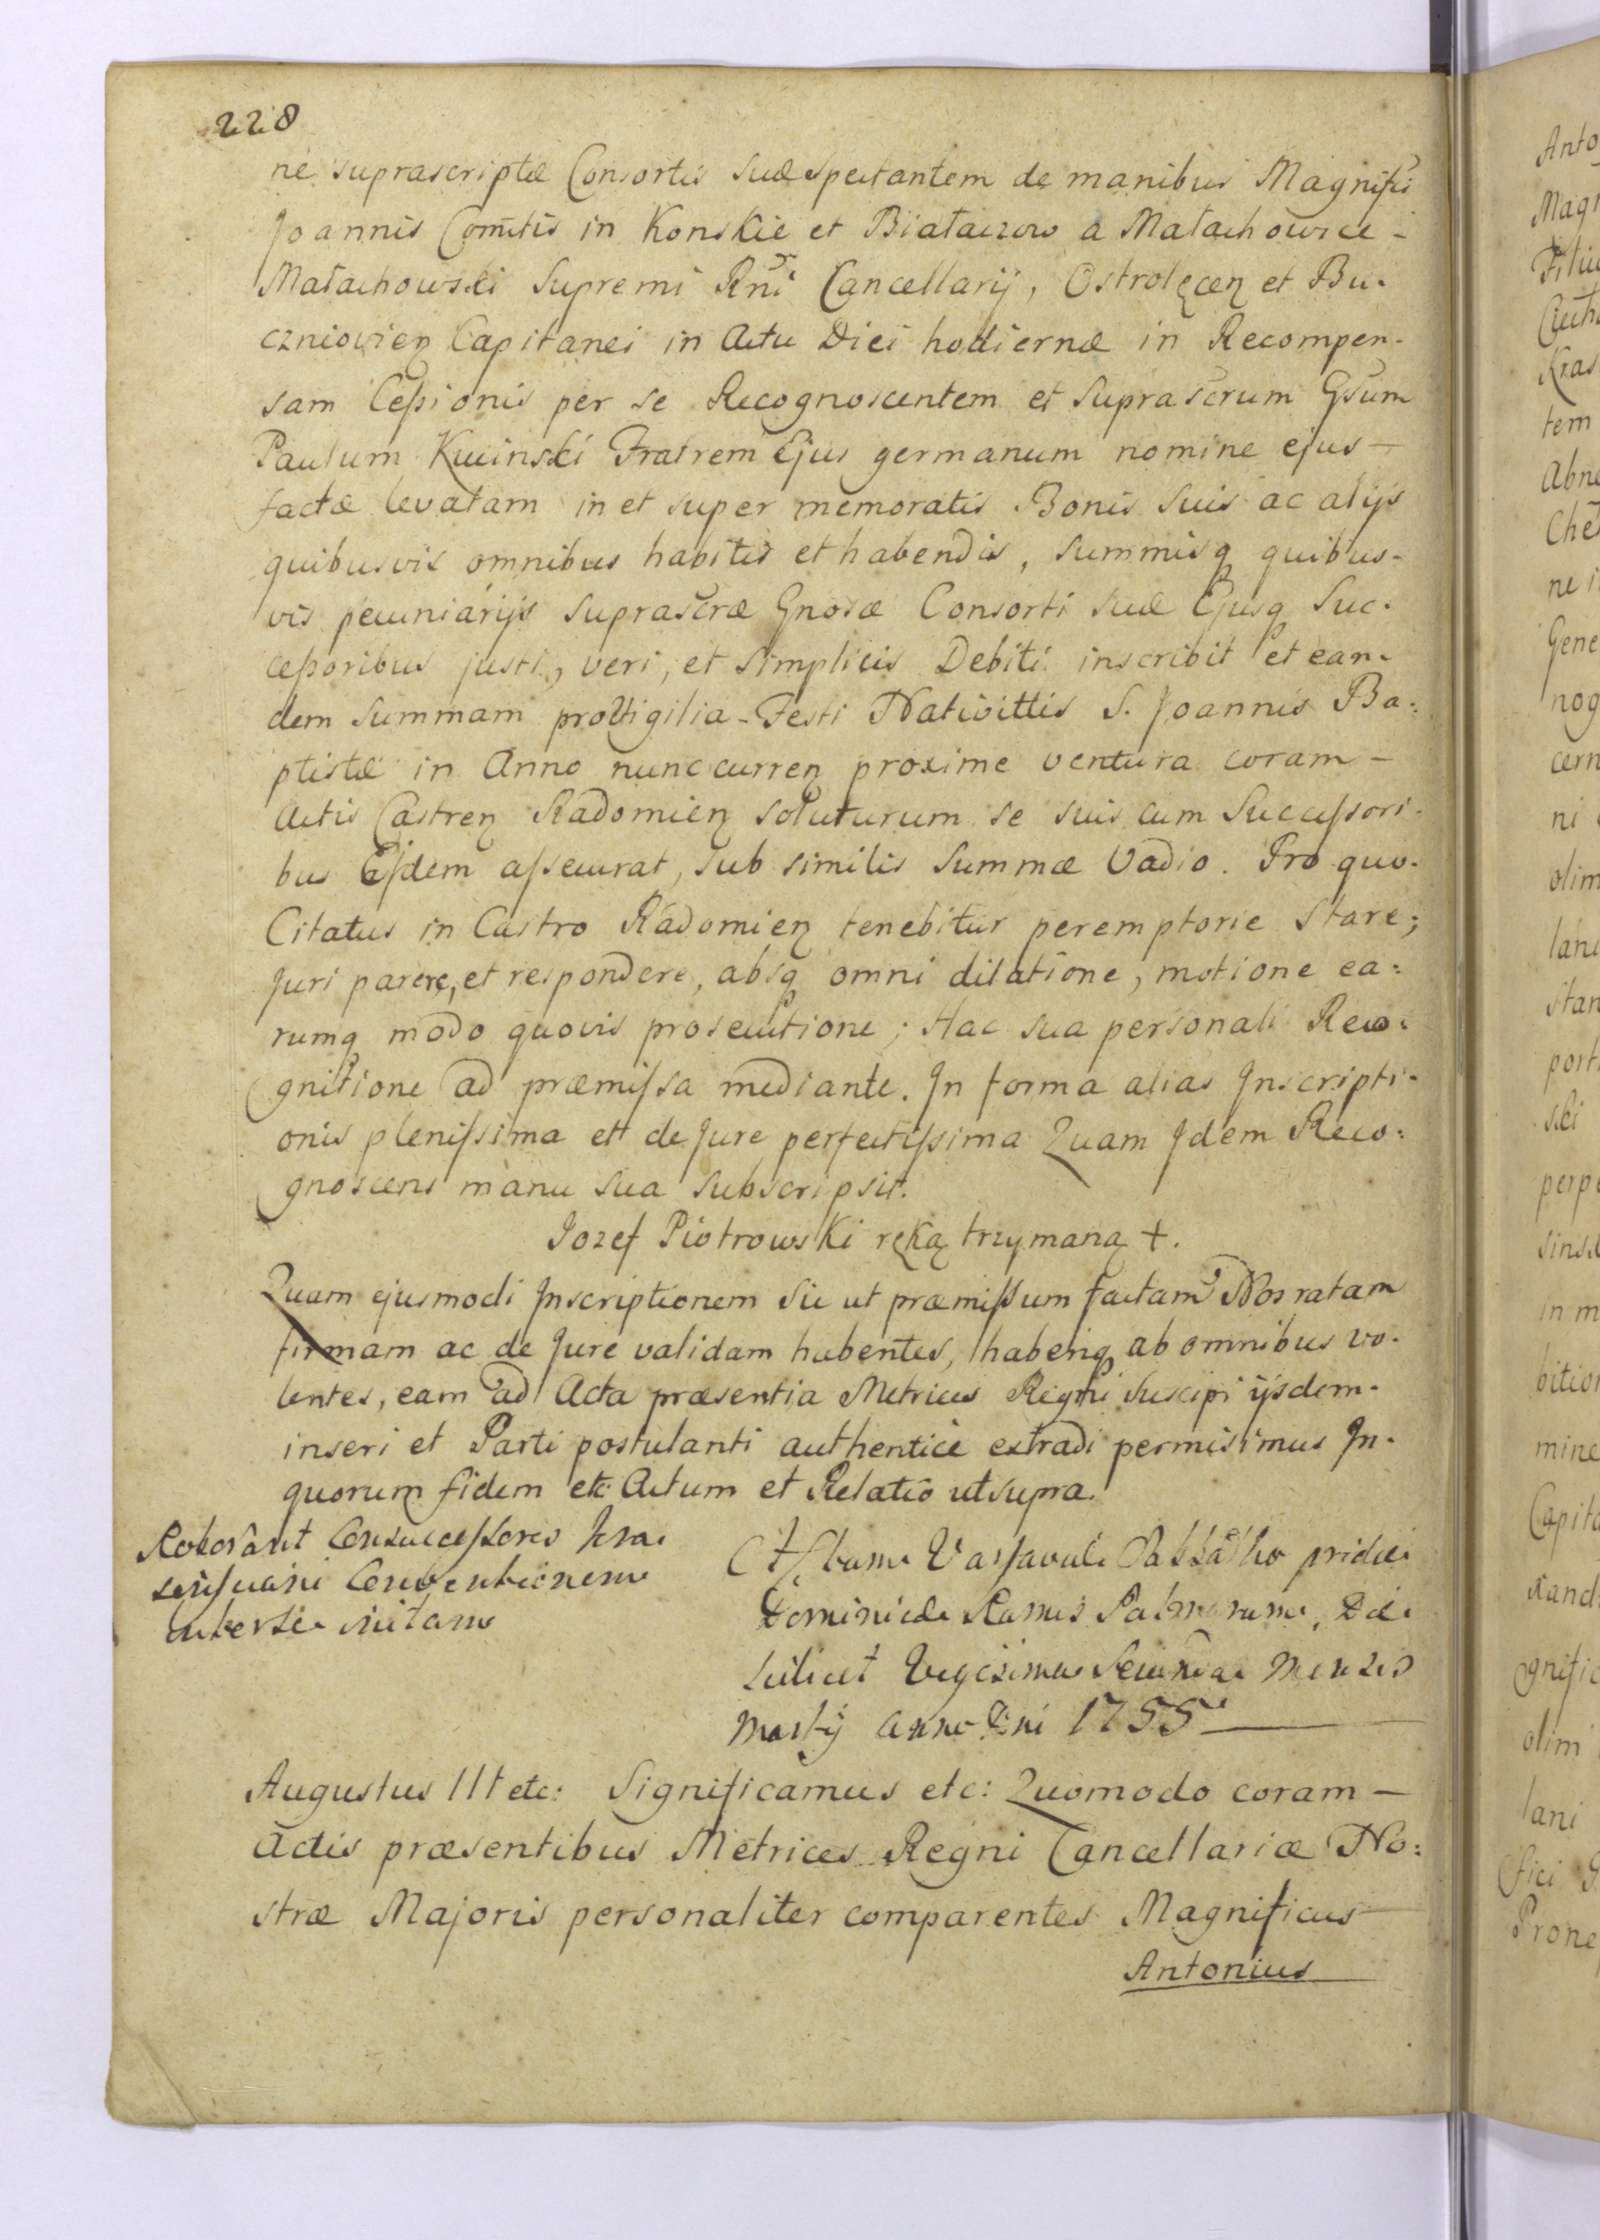 228
ne suprascriptæ Consortis suæ spectantem de manibus Magnifici
Joannis Comitis in Konskie et Białaczow a Małachowice -
Małachowski Supremi Rni Cancellarij, Ostrolęcen et Bu-
czniovien Capitanei in Actu Diei hodiernæ in Recompen-
sam Cessionis per se Recognoscentem et suprascrum Gsum
Paulum Kwinski Fratrem Ejus germanum nomine ejus -
factæ levatam in et super memoratis Bonis suis ac alijs
quibusvis omnibus habitis et habendis, summisq quibus-
vis pecuniarijs suprascræ Gnosæ Consorti suæ Ejusq Suc-
cessoribus justi, veri, et simplicis Debiti inscribit et ean-
dem summam pro Vigilia Festi Nativittis S. Joannis Ba:
ptistæ in Anno nunc curren proxime ventura coram -
Actis Castren Radomien soluturum se suis cum Successori-
bus Eidem assecurat, sub similis summæ Vadio. Pro quo-
Citatus in Castro Radomien tenebitur peremptorie stare;
Juri parere, et respondere, absq omni dilatione, motione ea:
rumq modo quovis prosecutione; Hac sua personali Reco-
gnitione ad præmissa mediante. In forma alias Inscripti-
onis plenissima et de Jure perfectissima Quam Idem Reco:
gnoscens manu sua subscripsit.
Jozef Piotrowski ręką trzymaną +.
Quam ejusmodi Inscriptionem sic ut præmissum factam Nos ratam
firmam ac de Jure validam habentes, haberiq ab omnibus vo-
lentes, eam ad Acta præsentia Metrices Regni suscipi ijsdem-
inseri et Parti postulanti authentice extradi permisimus In-
quorum fidem etc Actum et Relatio ut supra.
Roborant Consuccessores
Conventionem
inter se initam
Actum Varsaviæ Sabbatho pridie
Dominicæ Ramis Palmarum, Die
scilicet Vigesima Secunda Mensis
Martij Anno Dni 1755
Augustus III etc: Significamus etc: Quomodo coram -
Actis præsentibus Metrices Regni Cancellariæ No:
stræ Majoris personaliter comparentes Magnificus
Antonius